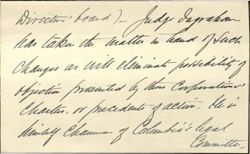 Directors' board) - Judge Ingraham
has taken the matter in hand of such
changes as will eliminate possibility of
objection presented by their Corporation's
Charter, or precedents of action. He is
himself Chairman of Columbia's legal
Committee